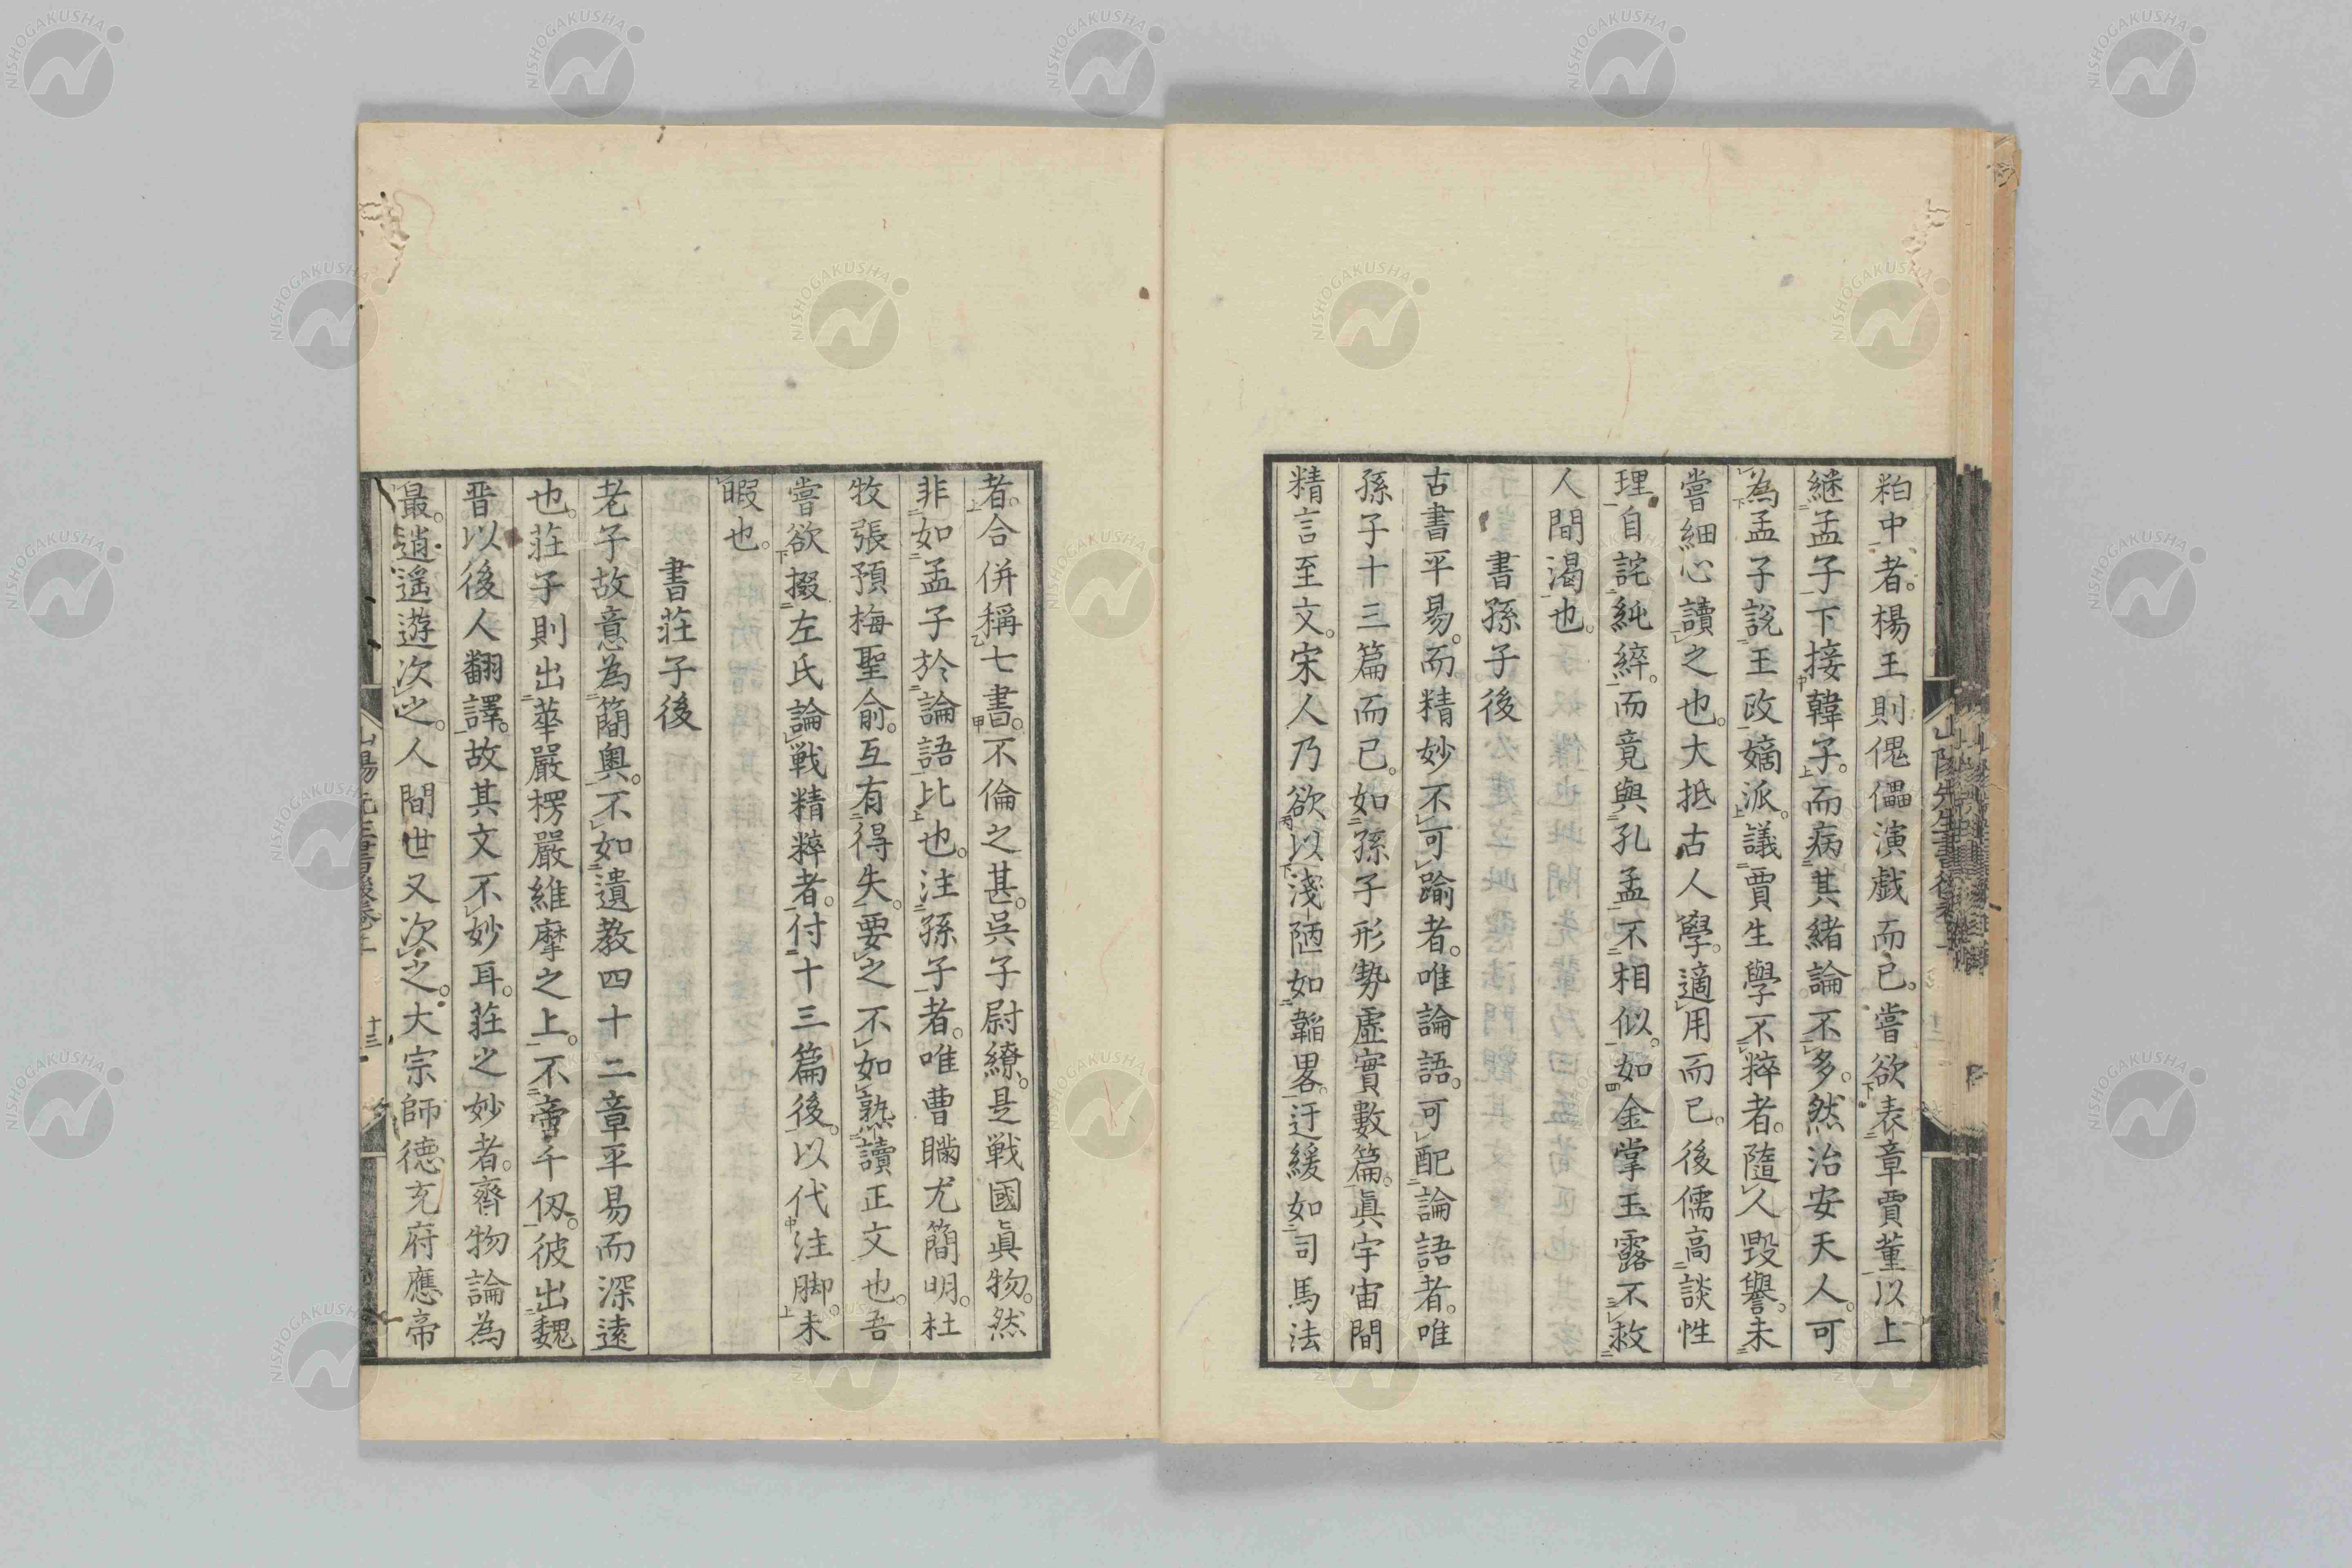 粕中者。楊王則傀儡演戲而已。嘗欲表章賈董以上
継孟子下接韓子。而病其緒論不多。然治安天人。可
為孟子説王政嫡派。議賈生學不粹者。隨人毀譽。未
嘗細心讀之也。大抵古人學。適用而已。後儒高談性
理自詫純綷。而竟與孔孟不相似。如金掌玉露不救
人間渇也。
書孫子後
古書平易。而精妙不可踰者。唯論語。可配論語者。唯
孫子十三篇而已。如孫子形勢虛實數篇。眞宇宙間
精言至文。宋人乃欲以淺陋如韜畧。迂緩如司馬法
者。合併稱七書。不倫之甚。吳子尉繚。是戰國眞物。然
非如孟子於論語比也。注孫子者。唯曹瞞尤簡明。杜
牧張預梅聖俞。互有得失。要之不如熟讀正文也。吾
嘗欲掇左氏論戰精粹者。付十三篇後。以代注脚。未
暇也。
書莊子後
老子故意為簡奧。不如遺教四十二章平易而深遠
也。莊子則出華嚴楞嚴維摩之上。不啻千仭。彼出魏
晋以後人翻譯。故其文不妙耳。莊之妙者。齊物論為
最。逍遙遊次之。人間世又次之。大宗師德充府應帝
山陽先生書後卷上
十三
NISHOGAKUSHA